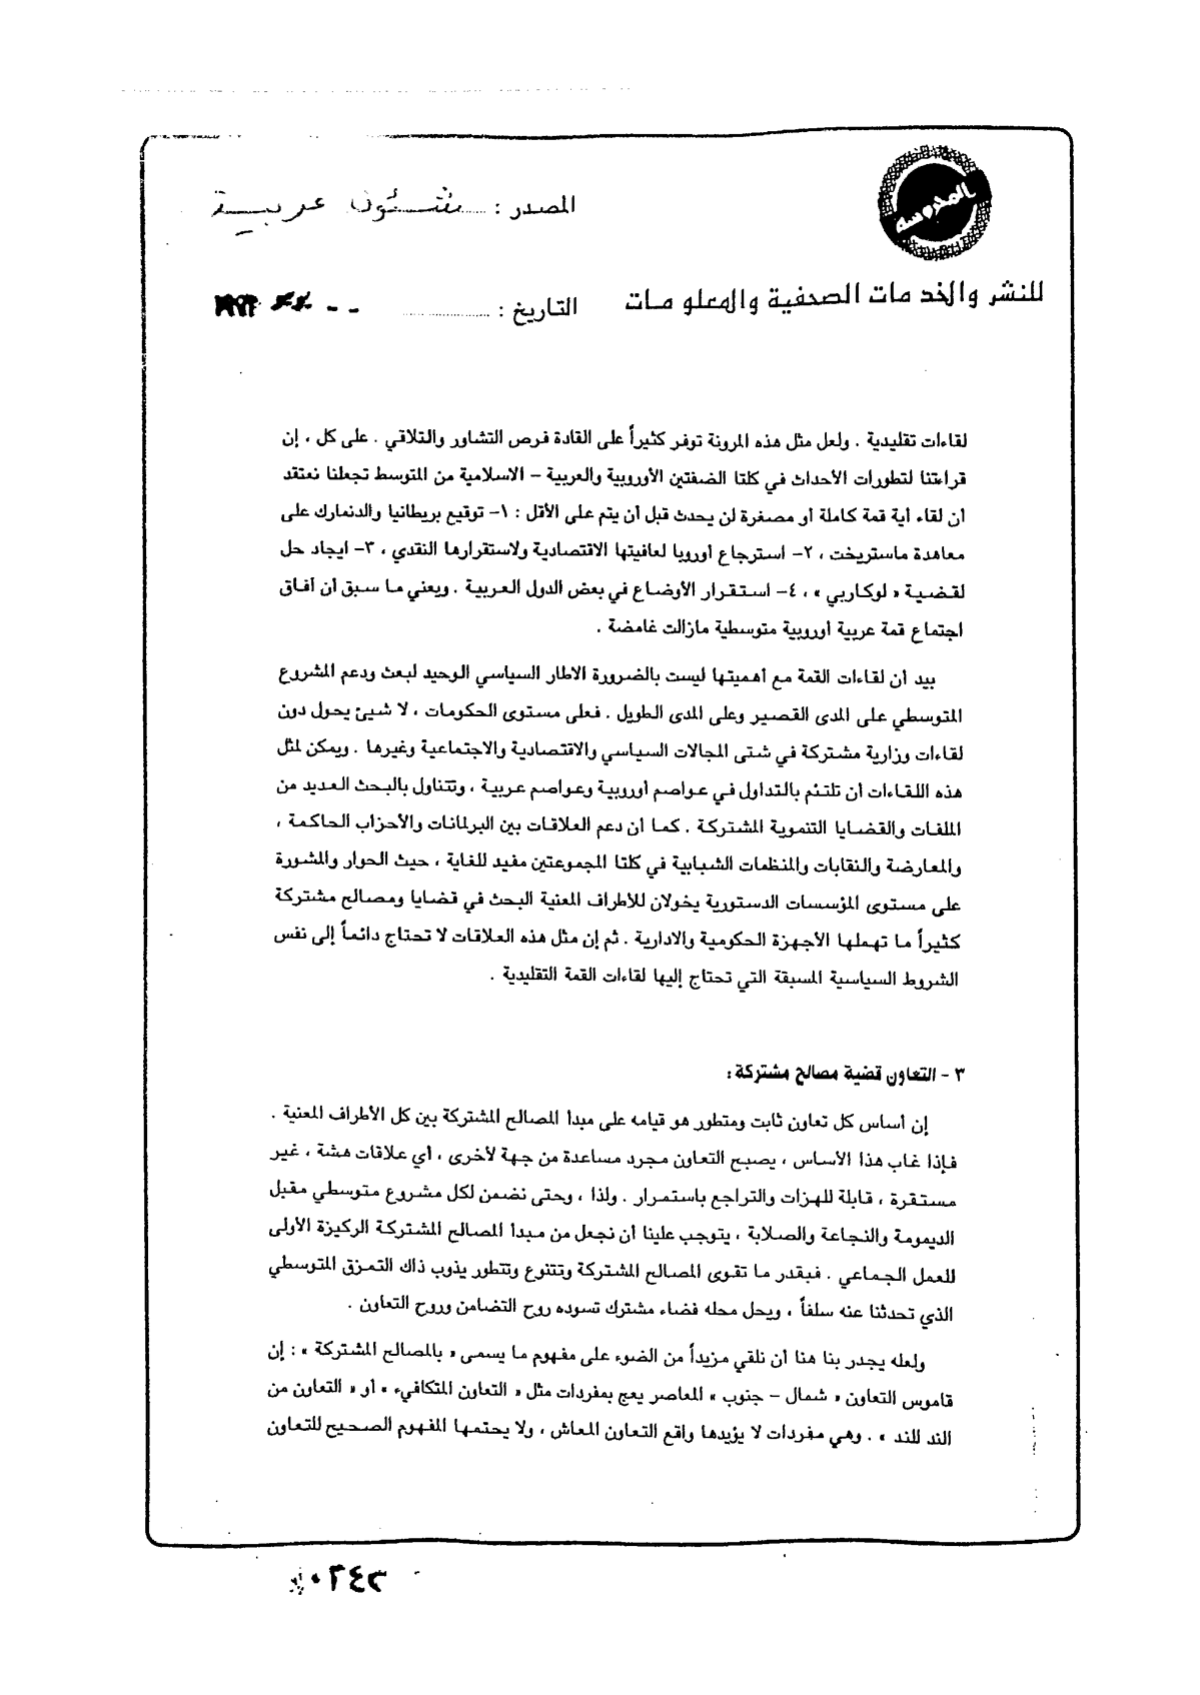 المدوسة
المصدر : شئون عربية
للنشر والخدمات الصحفية والمعلومات
التاريخ :
لقاءات تقليدية . ولعل مثل هذه المرونة توفر كثيراً على القادة فرص التشاور والتلاقي . على كل ، إن
قراءتنا لتطورات الأحداث في كلتا الضفتين الأوروبية والعربية – الاسلامية من المتوسط تجعلنا نعتقد
أن لقاء أية قمة كاملة أو مصغرة لن يحدث قبل أن يتم على الأقل : ١– توقيع بريطانيا والدنمارك على
معاهدة ماستريخت ، ٢– استرجاع أوروبا لعافيتها الاقتصادية ولاستقرارها النقدي ، ٣– ايجاد حل
لقضية « لوكاربي » ، ٤– استقرار الأوضاع في بعض الدول العربية . ويعني ما سبق أن آفاق
اجتماع قمة عربية أوروبية متوسطية مازالت غامضة .
بيد أن لقاءات القمة مع أهميتها ليست بالضرورة الاطار السياسي الوحيد لبعث ودعم المشروع
المتوسطي على المدى القصير وعلى المدى الطويل . فعلى مستوى الحكومات ، لا شيئ يحول دون
لقاءات وزارية مشتركة في شتى المجالات السياسي والاقتصادية والاجتماعية وغيرها . ويمكن لمثل
هذه اللقاءات أن تلتئم بالتداول في عواصم أوروبية وعواصم عربية ، وتتناول بالبحث العديد من
الملفات والقضايا التنموية المشتركة . كما أن دعم العلاقات بين البرلمانات والأحزاب الحاكمة ،
والمعارضة والنقابات والمنظمات الشبابية في كلتا المجموعتين مفيد للغاية ، حيث الحوار والمشورة
على مستوى المؤسسات الدستورية يخولان للأطراف المعنية البحث في قضايا ومصالح مشتركة
كثيراً ما تهملها الأجهزة الحكومية والادارية . ثم إن مثل هذه العلاقات لا تحتاج دائماً إلى نفس
الشروط السياسية المسبقة التي تحتاج إليها لقاءات القمة التقليدية .
٣ – التعاون قضية مصالح مشتركة :
إن أساس كل تعاون ثابت ومتطور هو قيامه على مبدأ المصالح المشتركة بين كل الأطراف المعنية .
فإذا غاب هذا الأساس ، يصبح التعاون مجرد مساعدة من جهة لأخرى ، أي علاقات هشة ، غير
مستقرة ، قابلة للهزات والتراجع باستمرار . ولذا ، وحتى نضمن لكل مشروع متوسطي مقبل
الديمومة والنجاعة والصلابة ، يتوجب علينا أن نجعل من مبدأ المصالح المشتركة الركيزة الأولى
للعمل الجماعي . فبقدر ما تقوى المصالح المشتركة وتتنوع وتتطور يذوب ذاك التمزق المتوسطي
الذي تحدثنا عنه سلفاً ، ويحل محله فضاء مشترك تسوده روح التضامن وروح التعاون .
ولعله يجدر بنا هنا أن نلقي مزيداً من الضوء على مفهوم ما يسمى « بالمصالح المشتركة » : إن
قاموس التعاون « شمال – جنوب » المعاصر يعج بمفردات مثل « التعاون المتكافيء » أو « التعاون من
الند للند » . وهي مفردات لا يؤيدها واقع التعاون المعاش ، ولا يحتمها المفهوم الصحيح للتعاون